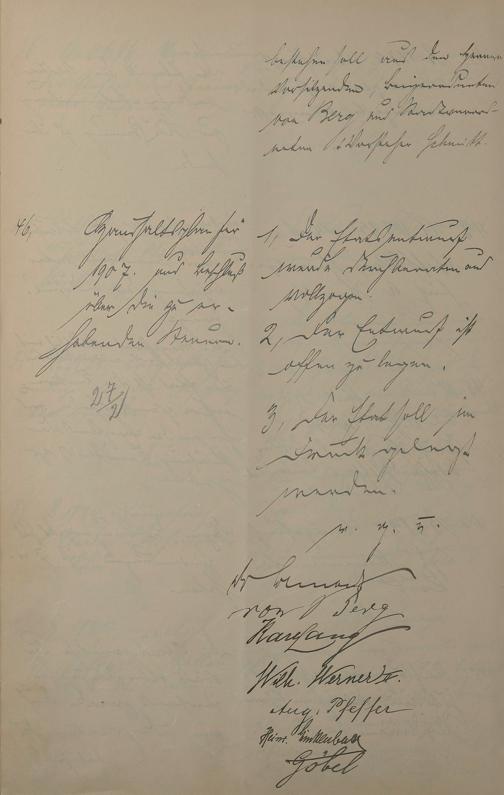 bestehen soll aus den Herren
Vorsitzenden, Beigeordneten
von Berg und Stadtverord-
neten Vorsteher Schmidt.
46. Haushaltsplan für
1907. und Beschluß
über die zu er-
hebenden Steuern.
27/2
1, Der Etatsentwurf
wurde durchberaten und
vollzogen.
2, Der Entwurf ist
offen zu legen.
3, Der Etat soll im
Druck gelegt
werden.
v. g. u.
von Berg
Wilh. Werner II.
Aug. Pfeffer
Heinr.
Göbel